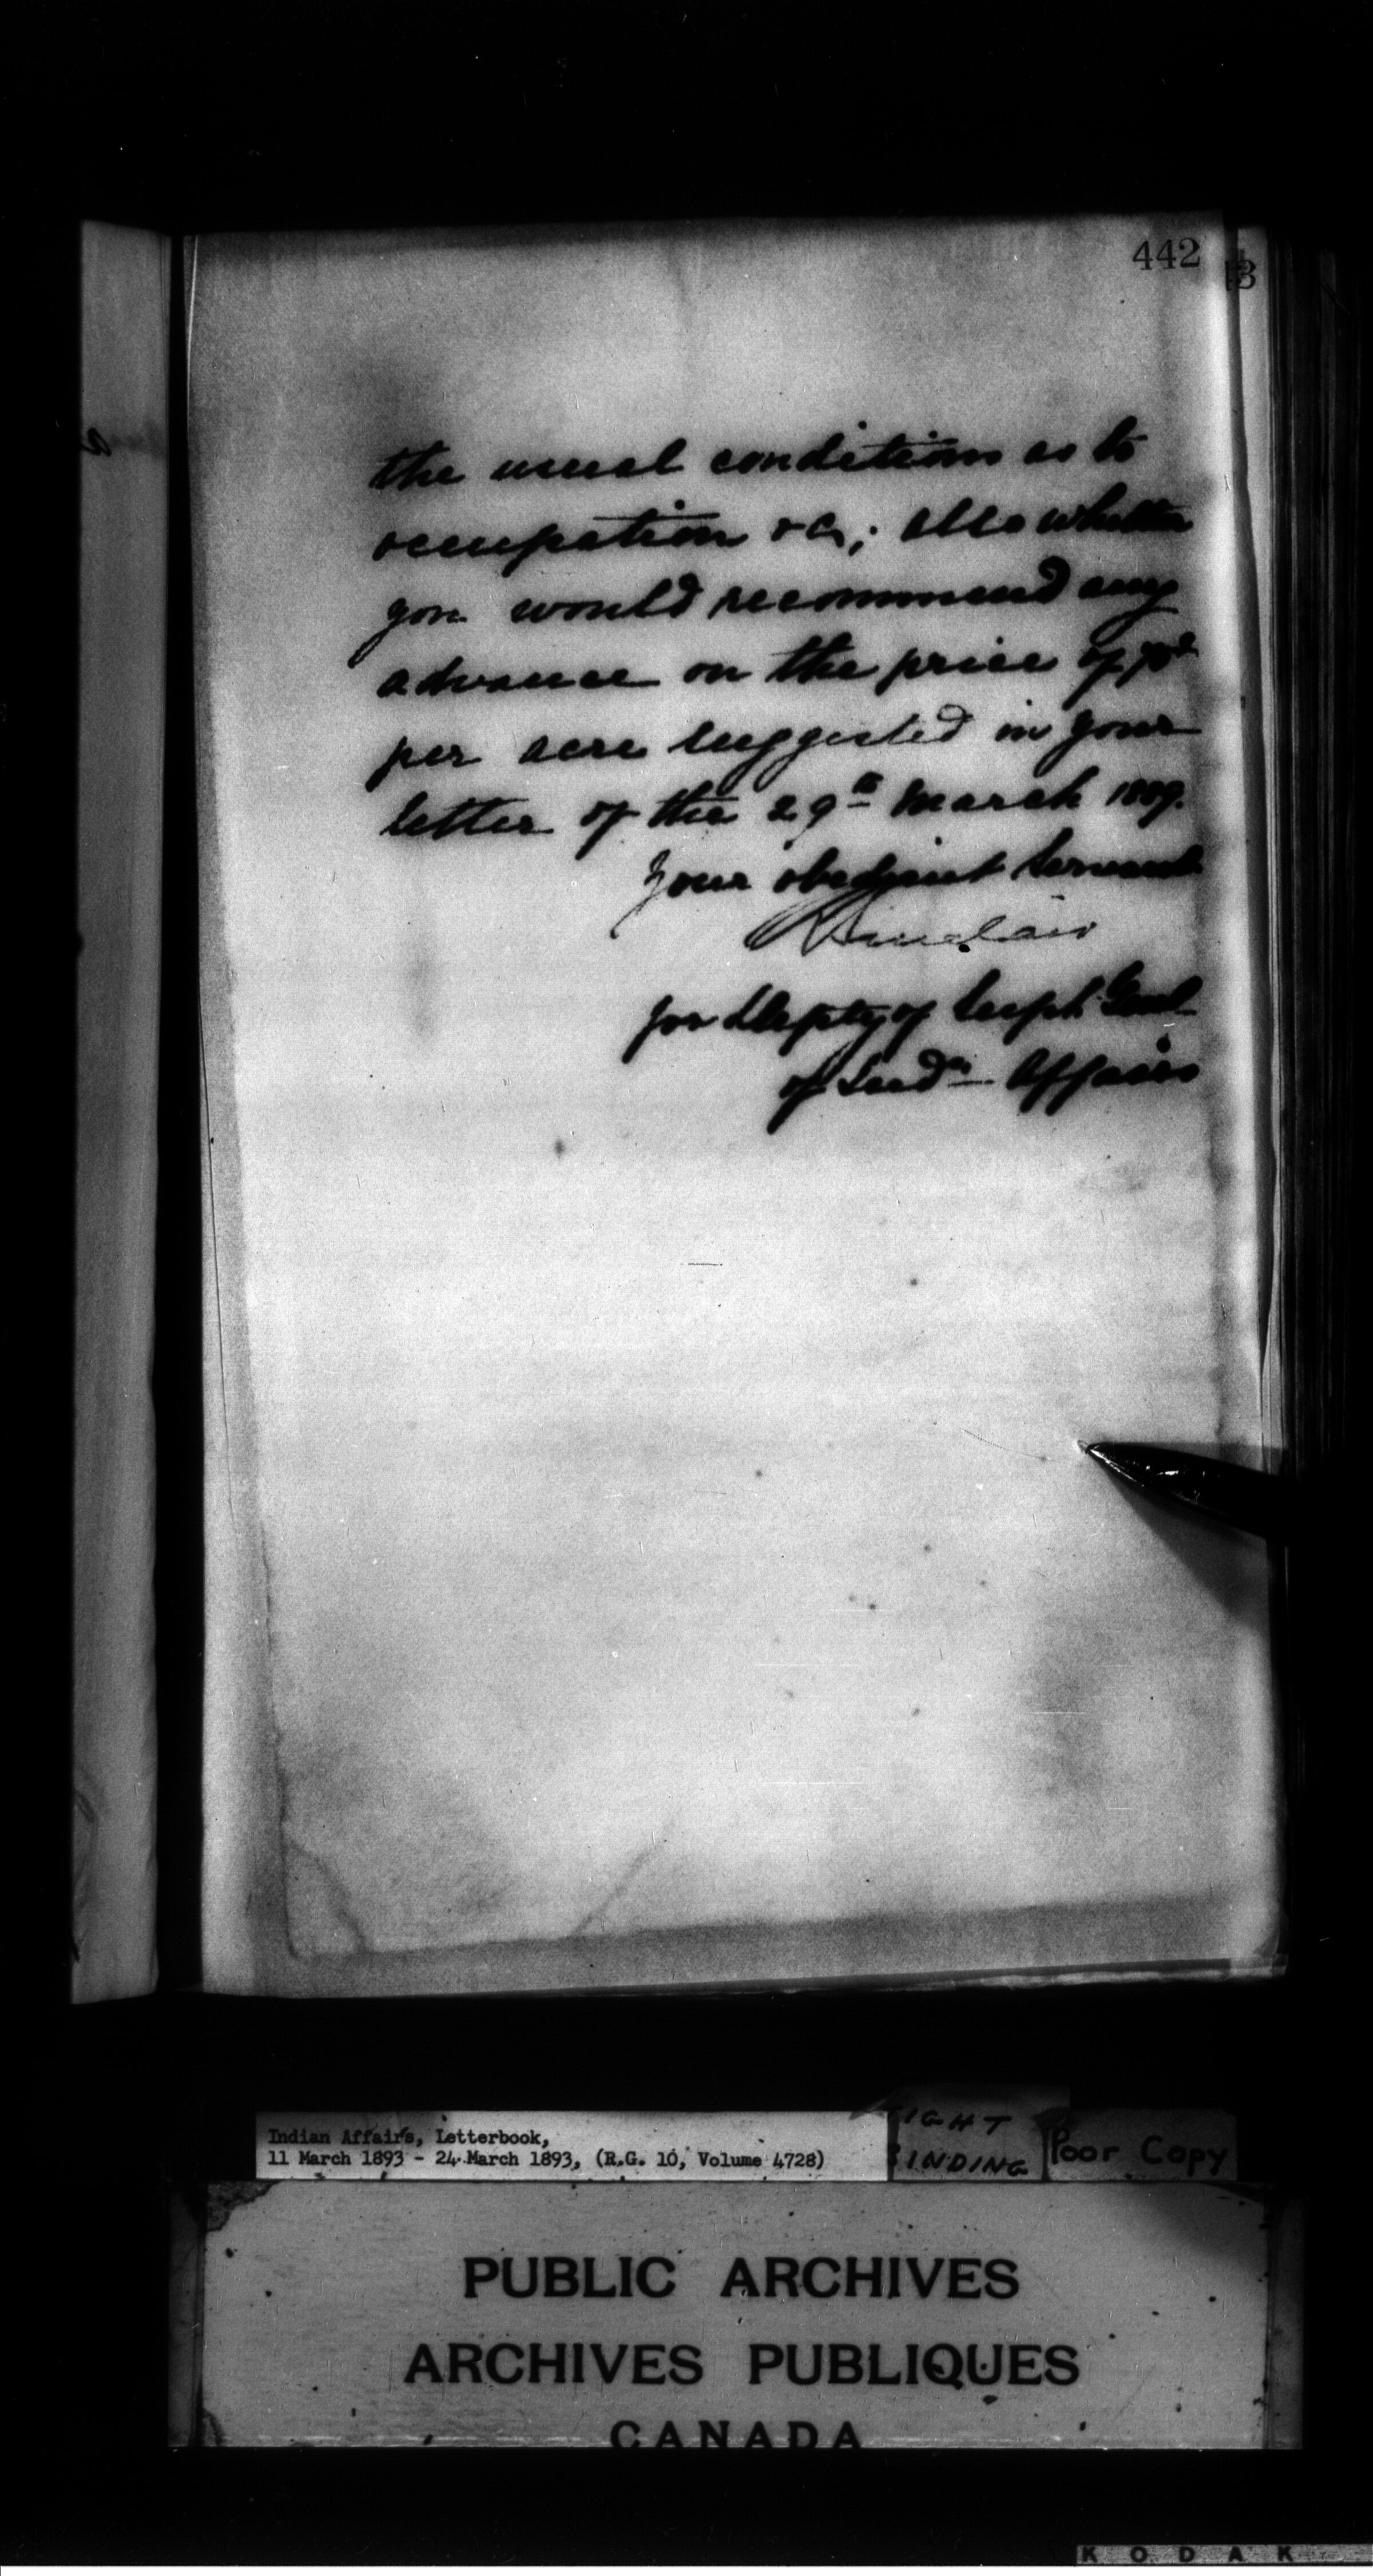 442
the usual conditions as to
occupation &c; also whether
you would recommend any
advance on the price of
per acre suggested in your
letter of the 29th March 1889.
Your obedient Servant
Sinclair
for Depty of Supt. Genl
of Indn Affairs
Indian Affairs, Letterbook,
11 March 1893 - 24 March 1893, (R.G. 10, Volume 4728)
IGHT
INDING
Poor Copy
PUBLIC ARCHIVES
ARCHIVES PUBLIQUES
CANADA
KODAK